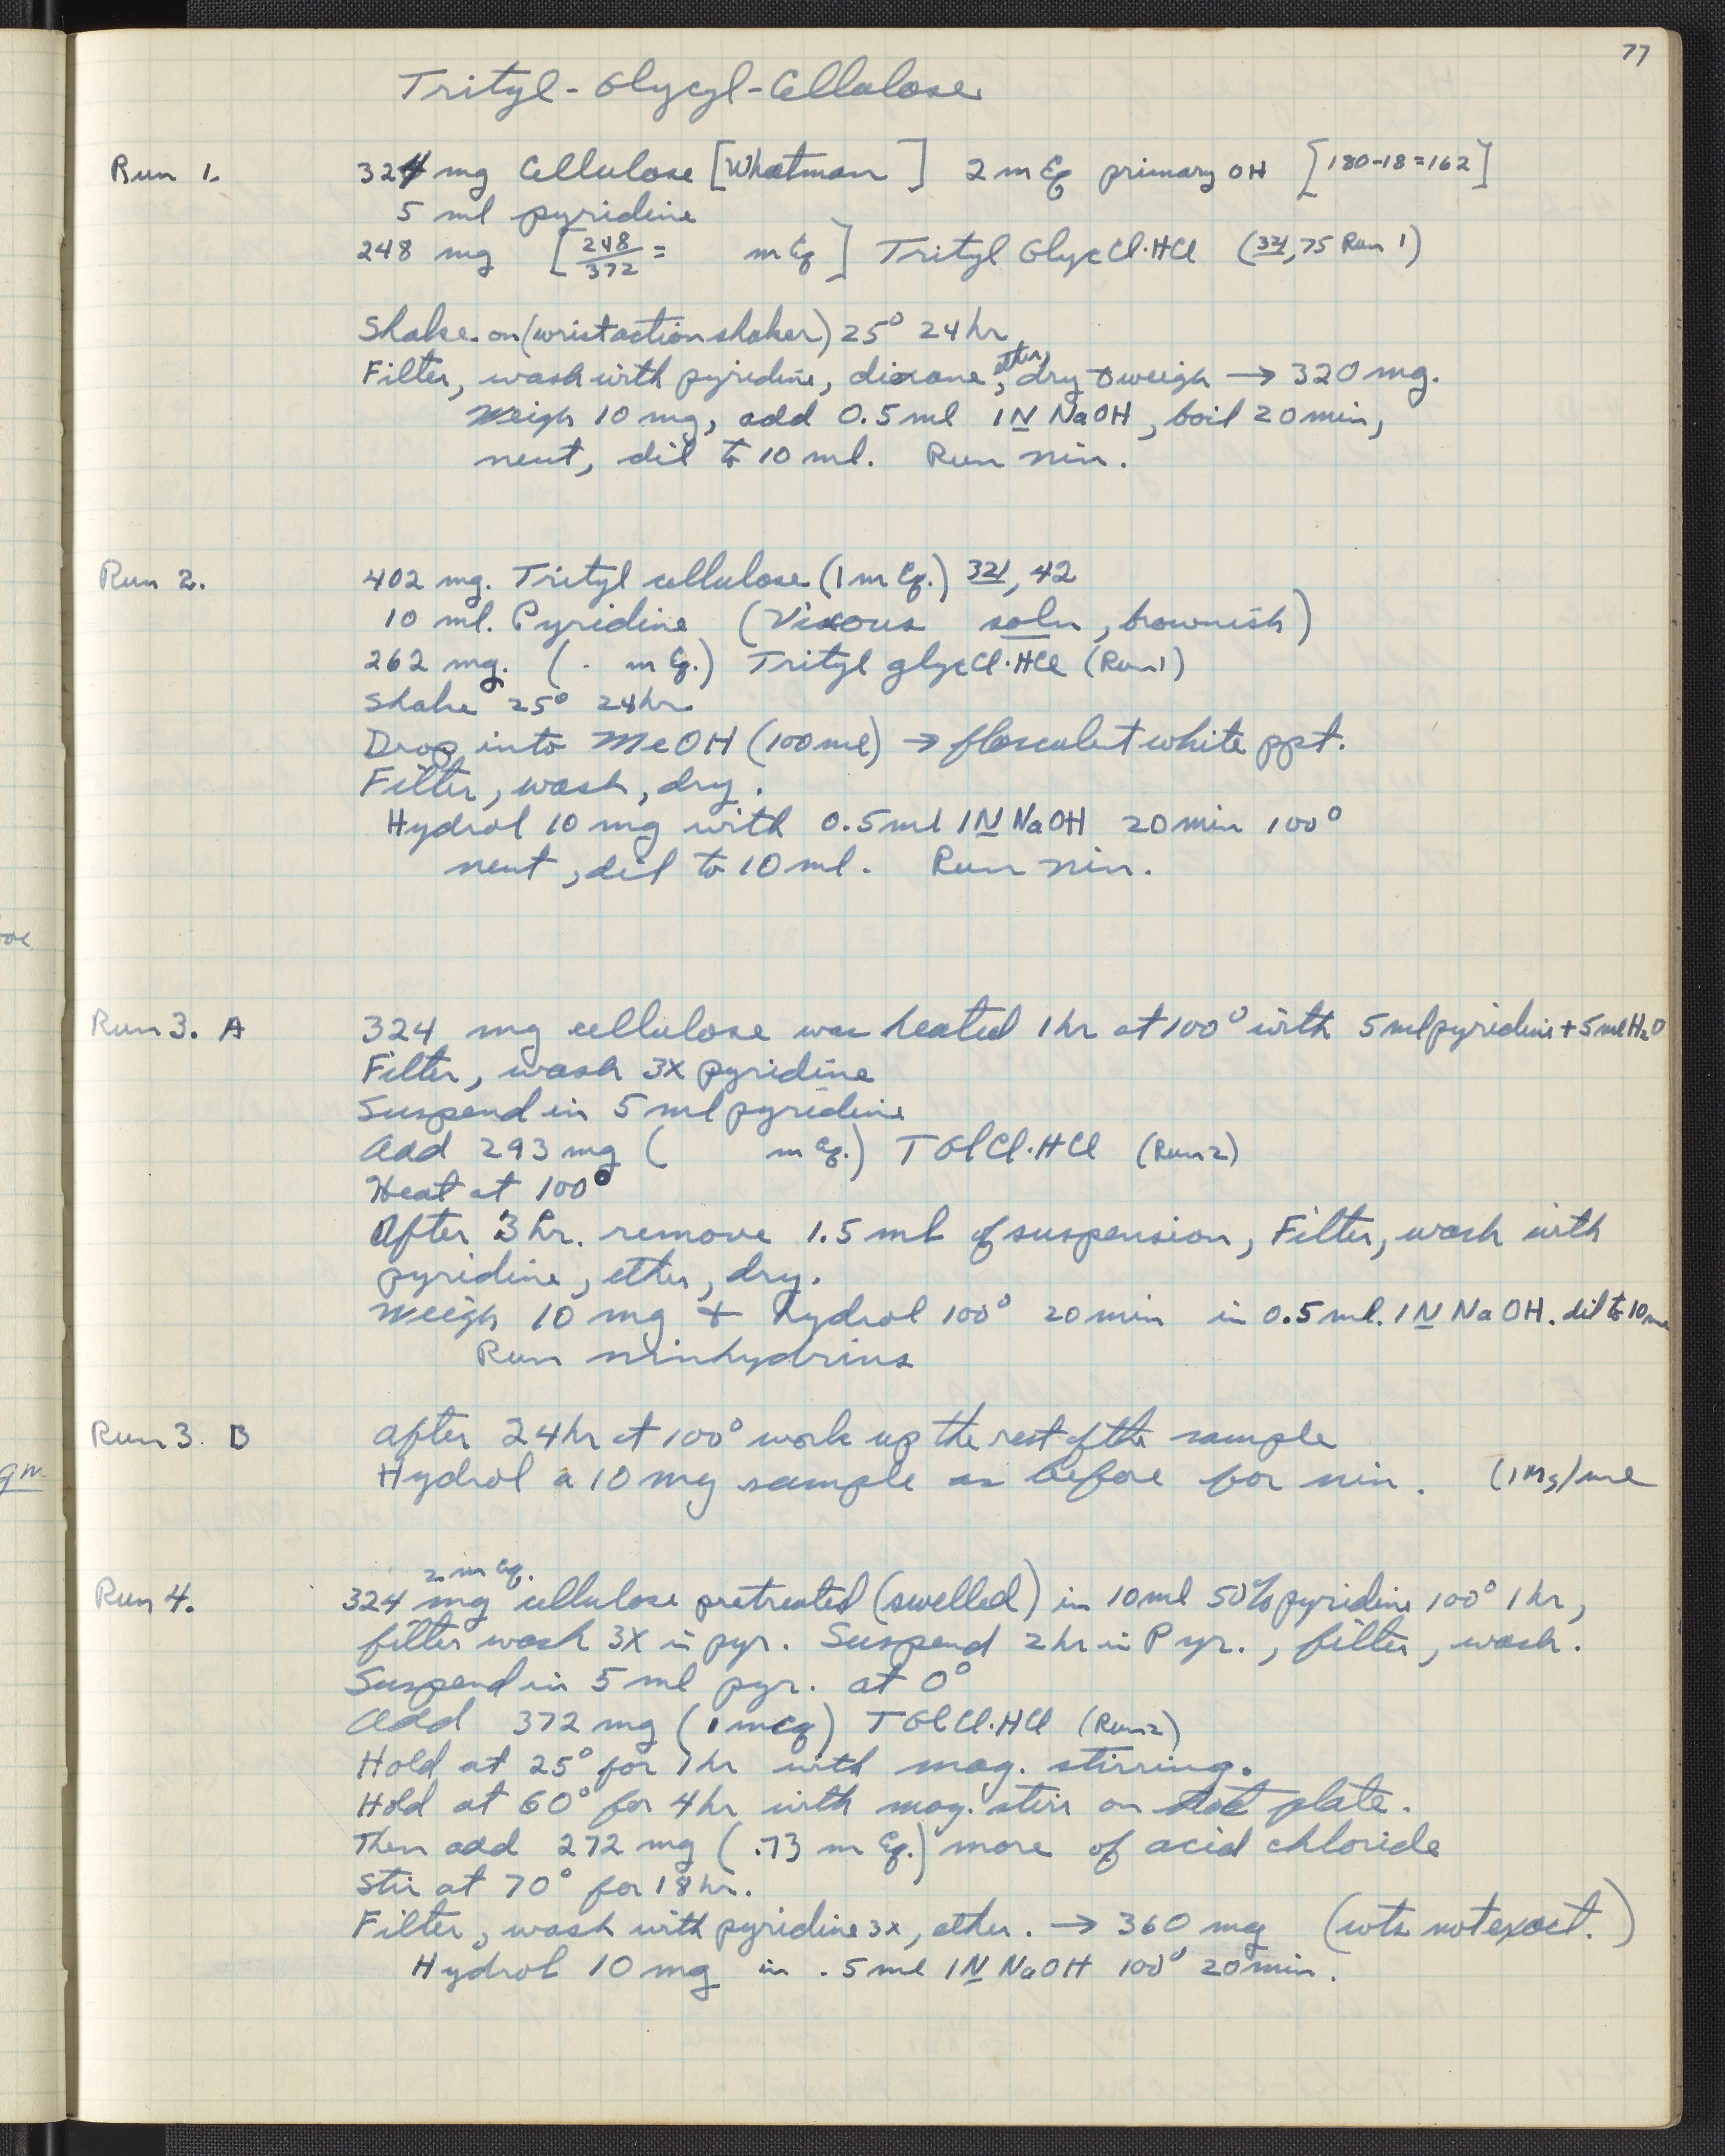 77
Trityl-Glycyl-Cellulose
Run 1. 324 mg Cellulose [Whatman ] 2 mEq primary OH [180-18=162]
5 ml pyridine
248 mg [248/372 = mEq] Trityl GlycCl·HCl (321, 75 Run 1)
Shake on (wrist action shaker) 25° 24 hr
Filter, wash with pyridine, dioxane, ether, dry & weigh → 320 mg.
Weigh 10 mg, add 0.5 ml 1N NaOH, boil 20 min,
neut, dil to 10 ml. Run nin.
Run 2. 402 mg. Trityl cellulose (1 mEq.) 321, 42
10 ml. Pyridine (Viscous soln, brownish)
262 mg. ( . mEq.) Trityl glycCl·HCl (Run 1)
Shake 25° 24 hr
Drop into MeOH (100 ml) → flosculent white ppt.
Filter, wash, dry.
Hydrol 10 mg with 0.5 ml 1N NaOH 20 min 100°
neut, dil to 10 ml. Run nin.
Run 3. A 324 mg cellulose was heated 1 hr at 100° with 5 ml pyridine + 5 ml H2O
Filter, wash 3X pyridine
Suspend in 5 ml pyridine
Add 293 mg ( mEq.) TGlCl·HCl (Run 2)
Heat at 100°
After 3 hr. remove 1.5 ml of suspension, Filter, wash with
pyridine, ether, dry.
Weigh 10 mg + hydrol 100° 20 min in 0.5 ml. 1N NaOH. dil to 10 ml
Run ninhydrins
Run 3. B After 24 hr at 100° work up the rest of the sample
Hydrol a 10 mg sample as before for nin. (1 Mg)/ml
gm
2 mEq.
Run 4. 324 mg cellulose pretreated (swelled) in 10 ml 50% pyridine 100° 1 hr,
filter wash 3X in pyr. Suspend 2 hr in Pyr., filter, wash.
Suspend in 5 ml pyr. at 0°
Add 372 mg (1 mEq) TGlCl·HCl (Run 2)
Hold at 25° for 1 hr with mag. stirring.
Hold at 60° for 4 hr with mag. stirr on hot plate.
Then add 272 mg (.73 mEq.) more of acid chloride
Stir at 70° for 18 hr.
Filter, wash with pyridine 3x, ether. → 360 mg (wts not exact.)
Hydrol 10 mg in .5 ml 1N NaOH 100° 20 min.